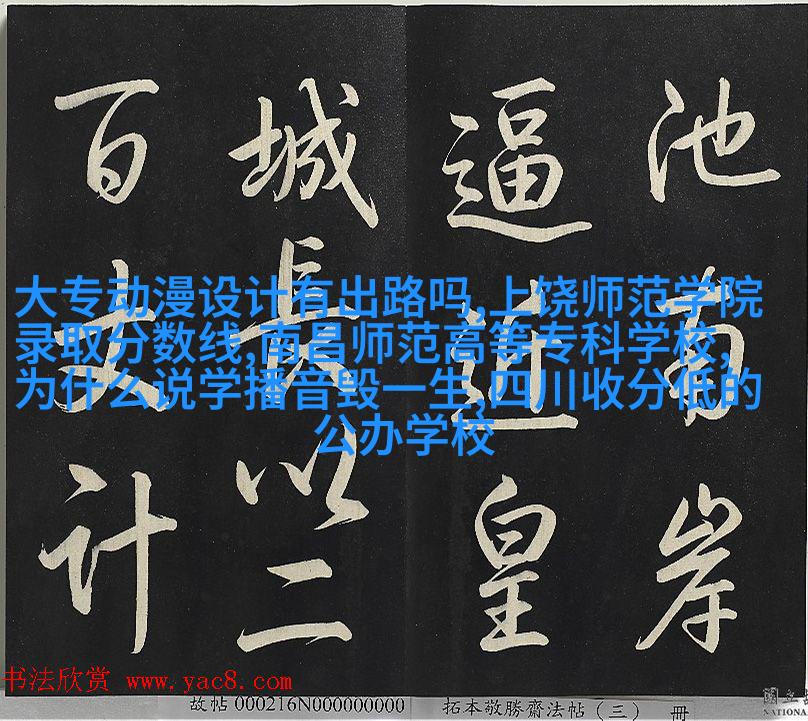 池南岸
逼近皇
城長以二
百丈計
大专动漫设计有出路吗,上饶师范学院
录取分数线,南昌师范高等专科学校,
为什么说学播音毁一生,四川收分低的
公办学校
书法欣赏 www.yac8.com
故帖 000216N000000000
拓本敬勝齋法帖（三） 冊
國立
NATIONA